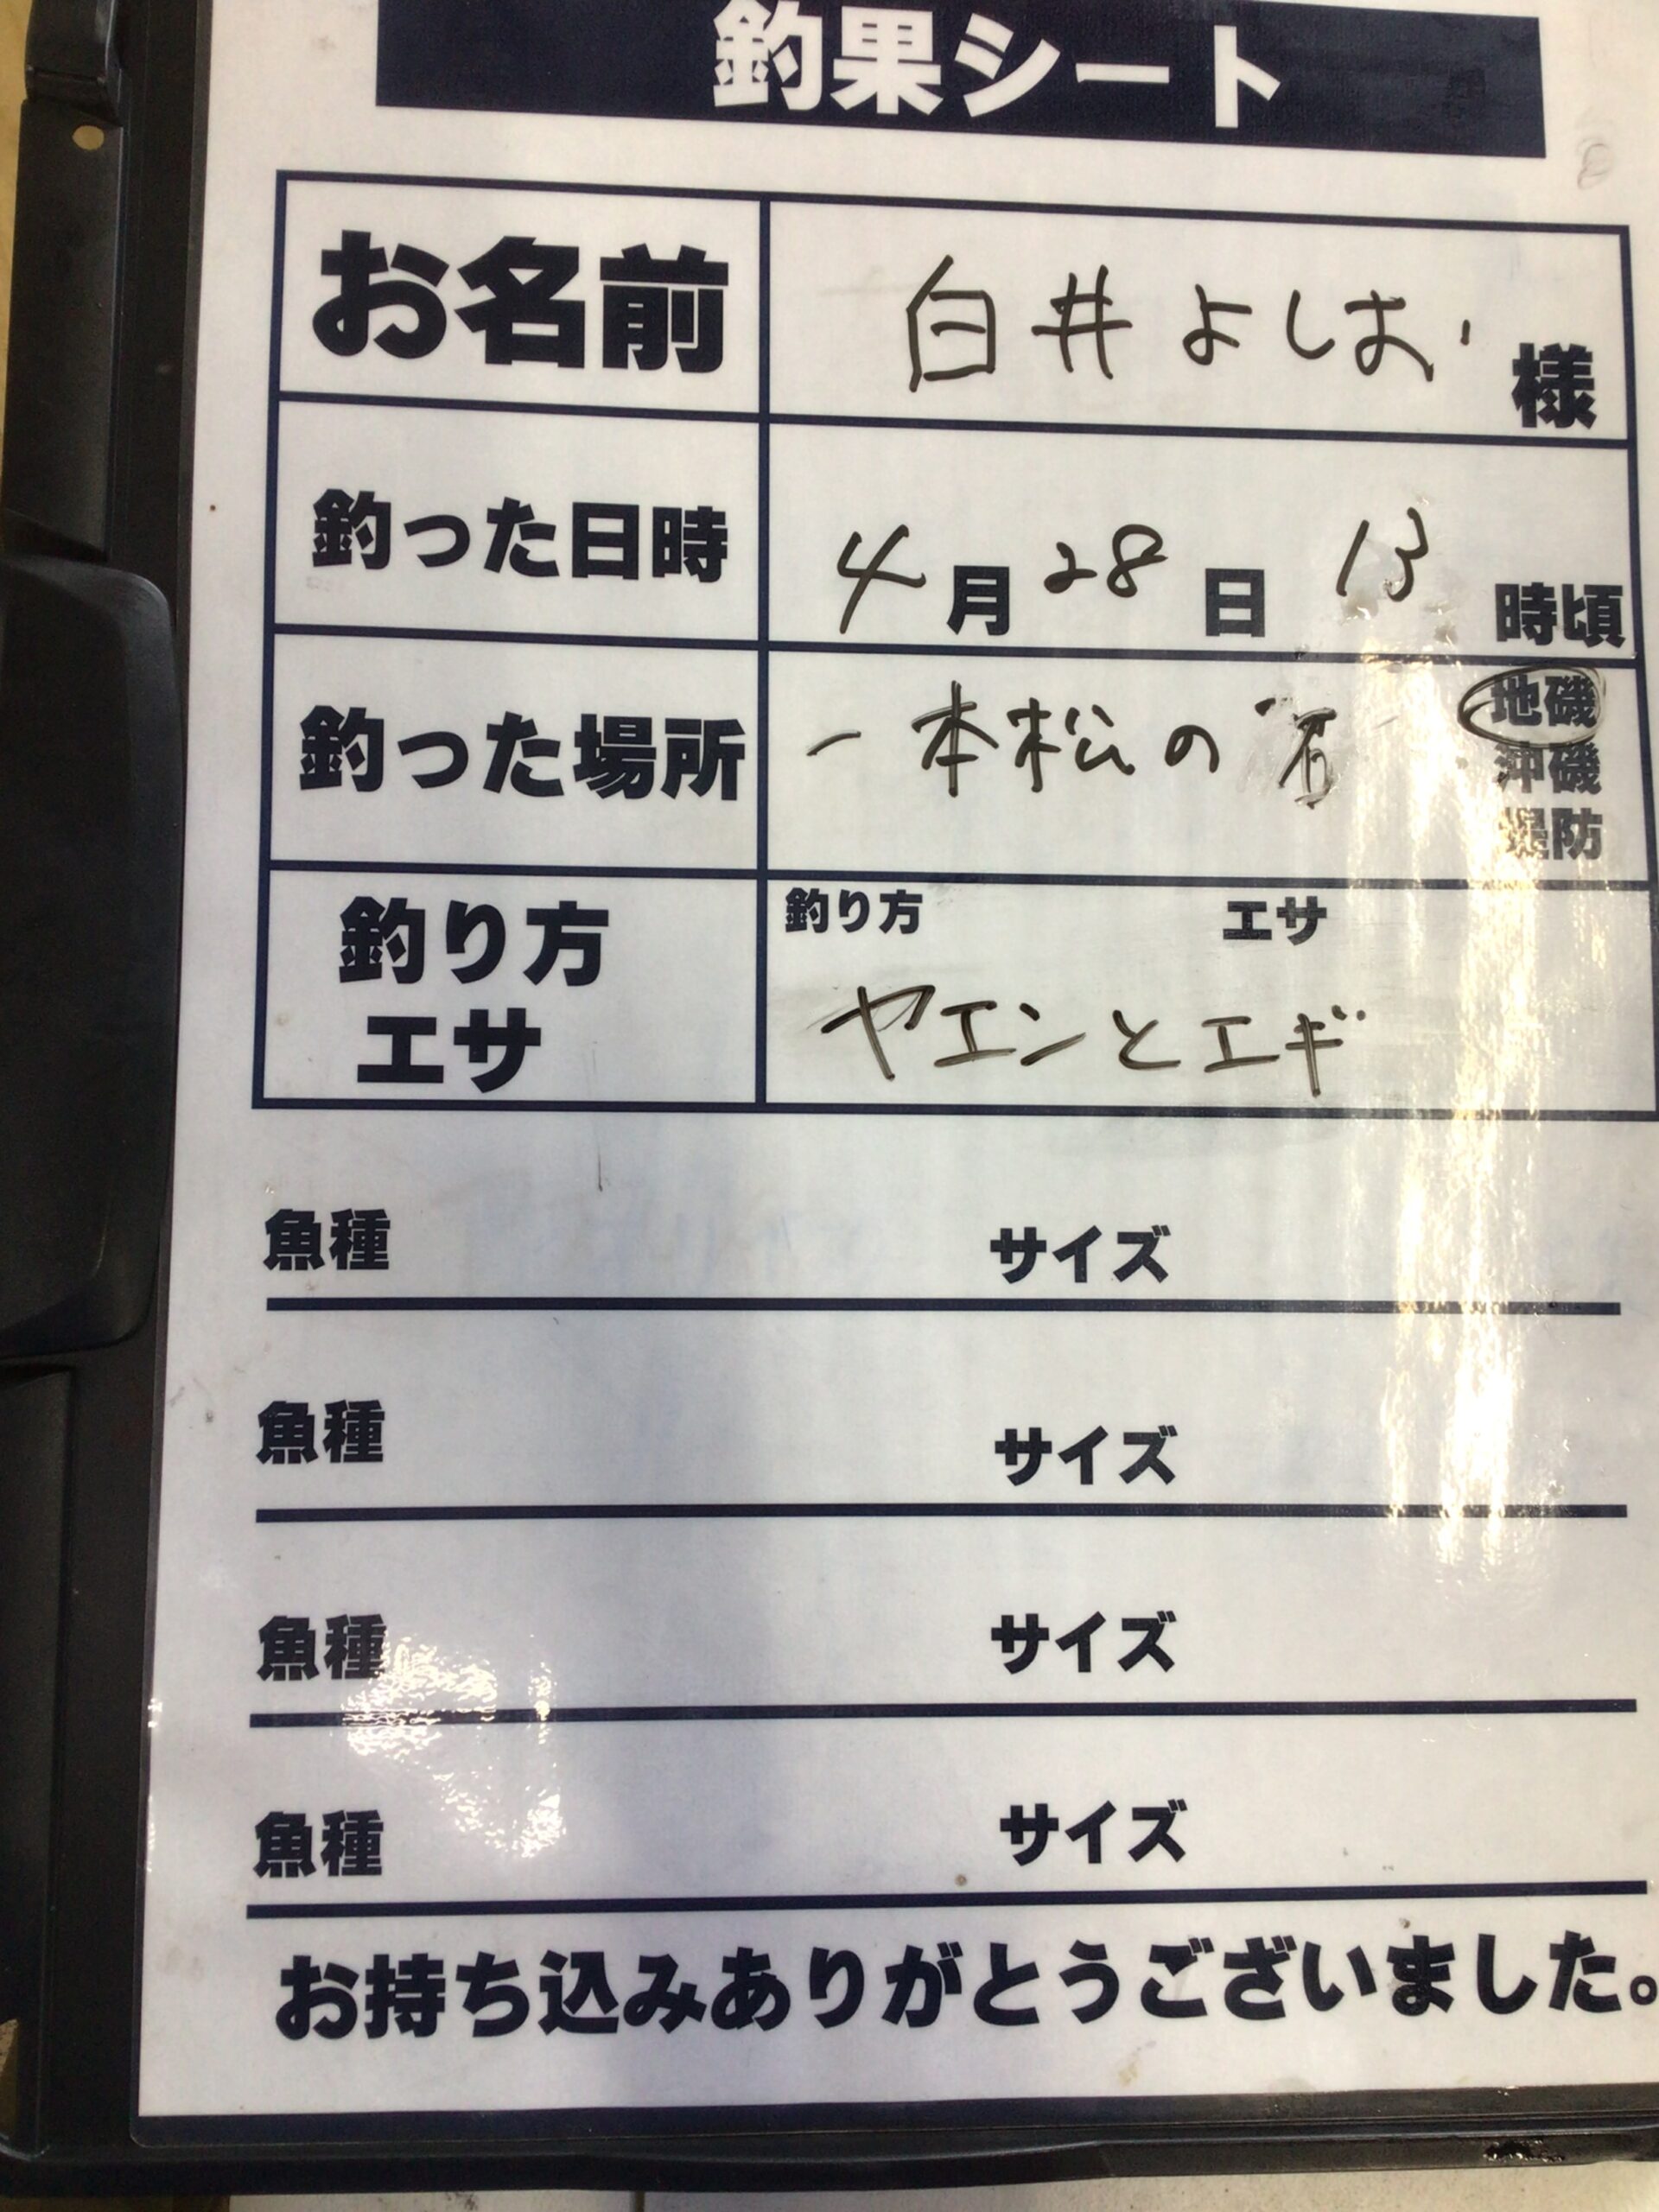 釣果シート
お名前 白井よしお 様
釣った日時 4月28日 13時頃
釣った場所 一本松の 地磯
沖磯
堤防
釣り方 エサ
釣り方
エサ ヤエンとエギ
魚種 サイズ
魚種 サイズ
魚種 サイズ
魚種 サイズ
お持ち込みありがとうございました。